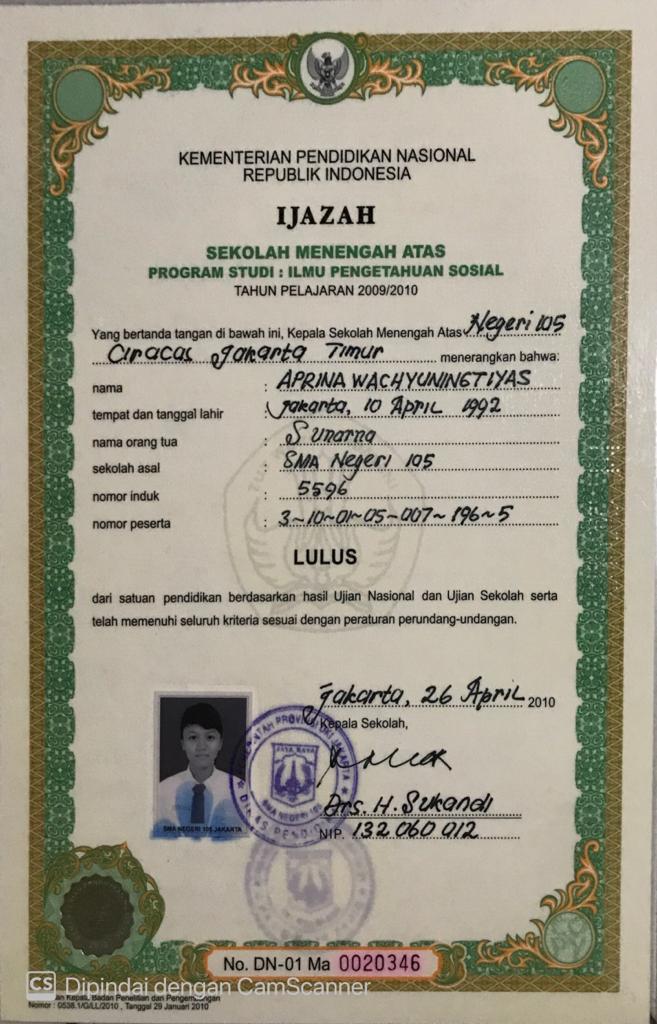 KEMENTERIAN PENDIDIKAN NASIONAL
REPUBLIK INDONESIA
IJAZAH
SEKOLAH MENENGAH ATAS
PROGRAM STUDI : ILMU PENGETAHUAN SOSIAL
TAHUN PELAJARAN 2009/2010
Yang bertanda tangan di bawah ini, Kepala Sekolah Menengah Atas Negeri 105
Ciracas Jakarta Timur menerangkan bahwa:
nama : APRINA WACHYUNINGTIYAS
tempat dan tanggal lahir : Jakarta, 10 April 1992
nama orang tua : Sunarna
sekolah asal : SMA Negeri 105
nomor induk : 5596
nomor peserta : 3-10-01-05-007-196-5
LULUS
dari satuan pendidikan berdasarkan hasil Ujian Nasional dan Ujian Sekolah serta
telah memenuhi seluruh kriteria sesuai dengan peraturan perundang-undangan.
Jakarta, 26 April 2010
Kepala Sekolah,
Drs. H. Sukandi
NIP. 132 060 012
JAYA RAYA
SMA NEGERI 105
SMA NEGERI 105 JAKARTA
No. DN-01 Ma 0020346
CS Dipindai dengan CamScanner
Kepala Badan Penelitian dan Pengembangan
Nomor : 0538.1/G/LL/2010 , Tanggal 29 Januari 2010